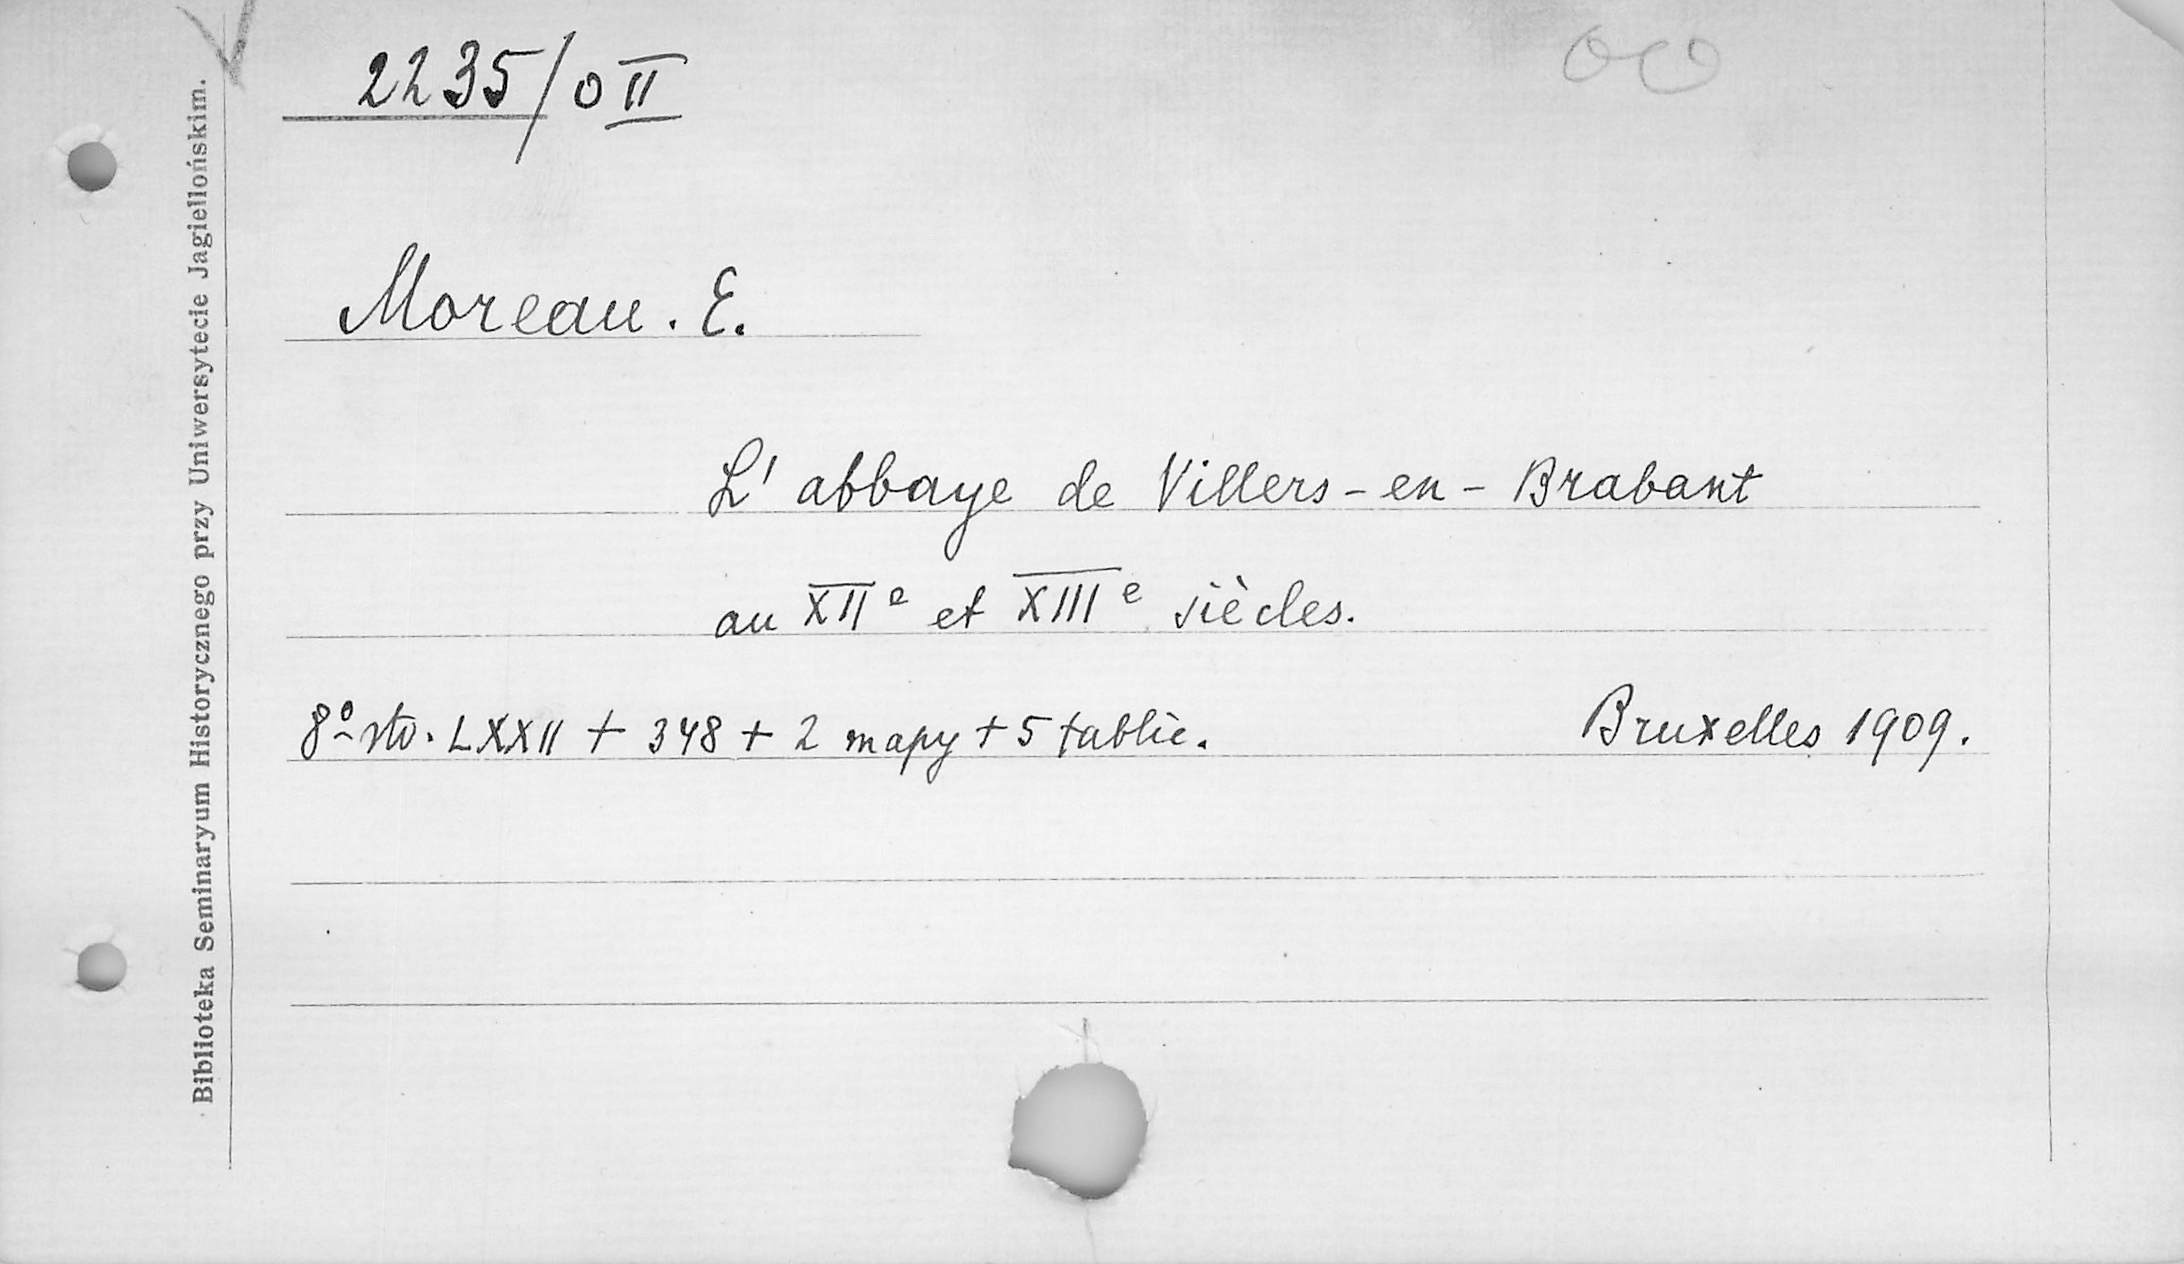 2235/0 II
Moreau. E.
L'abbaye de Villers-en-Brabant
au XIIe et XIIIe siècles.
8º str. LXXII + 348 + 2 mapy + 5 tablic. Bruxelles 1909.
Biblioteka Seminaryum Historycznego przy Uniwersytecie Jagiellońskim.